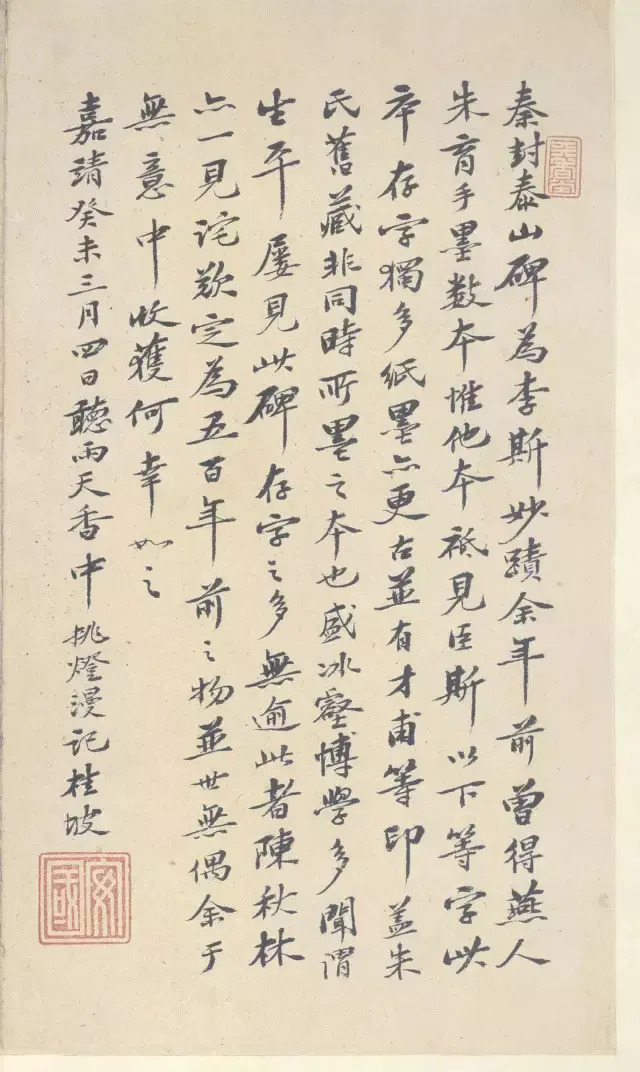 秦封泰山碑為李斯妙蹟余年前曾得燕人
朱育手墨数本惟他本祗見臣斯以下等字此
本存字獨多紙墨亦更古並有才甫等印盖朱
氏舊藏非同時所墨之本也盛冰壑博學多聞謂
生平屡見此碑存字之多無逾此者陳秋林
亦一見詫歎定為五百年前之物並世無偶余于
無意中收獲何幸如之
嘉靖癸未三月四日聽雨天香中挑燈漫記桂坡
安國